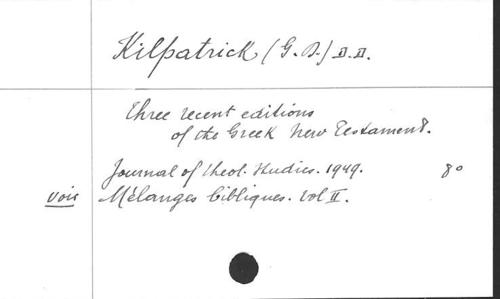 Kilpatrick (G. D.) D.D.
Three recent editions
of the Greek New Testament.
Journal of theol. Studies. 1949. 8º
voir Mélanges bibliques. Vol II.